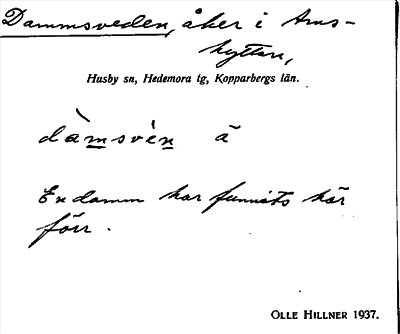 Dammsveden, åker i Ams-
hyttan,
Husby sn, Hedemora tg, Kopparbergs län.
dàmsvèn ä
En damm har funnits här
förr.
OLLE HILLNER 1937.